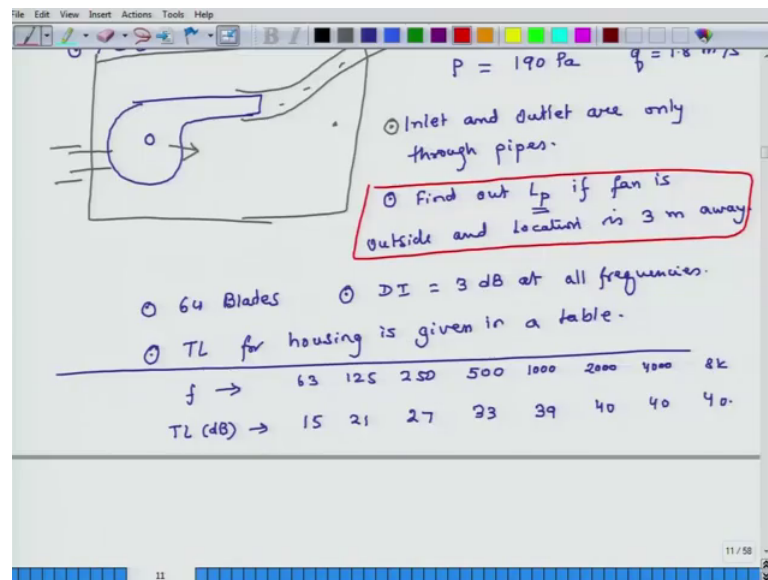 File Edit View Insert Actions Tools Help
P = 190 Pa q = 1.8 m³/s
⊙ Inlet and outlet are only
through pipes.
⊙ Find out Lp if fan is
outside and location is 3 m away.
⊙ 64 Blades ⊙ DI = 3 dB at all frequencies.
⊙ TL for housing is given in a table.
f → 63 125 250 500 1000 2000 4000 8k
TL (dB) → 15 21 27 33 39 40 40 40.
11 / 58
11